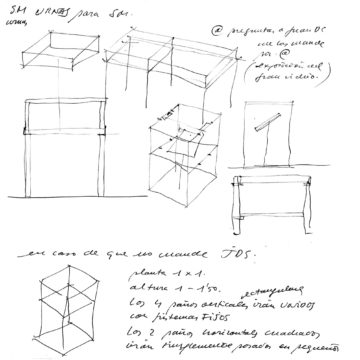 SM URNAS para Sm.
@ preguntar a Juan DC
me los mande
por @
(exposición del
gran vidrio.)
en caso de que no mande JDS.
planta 1 x 1.
altura 1 - 1'50.
rectangulares
Los 4 paños verticales irán unidos
con sistemas fijos
Los 2 paños horizontales cuadrados
irán simplemente posados en pequeños